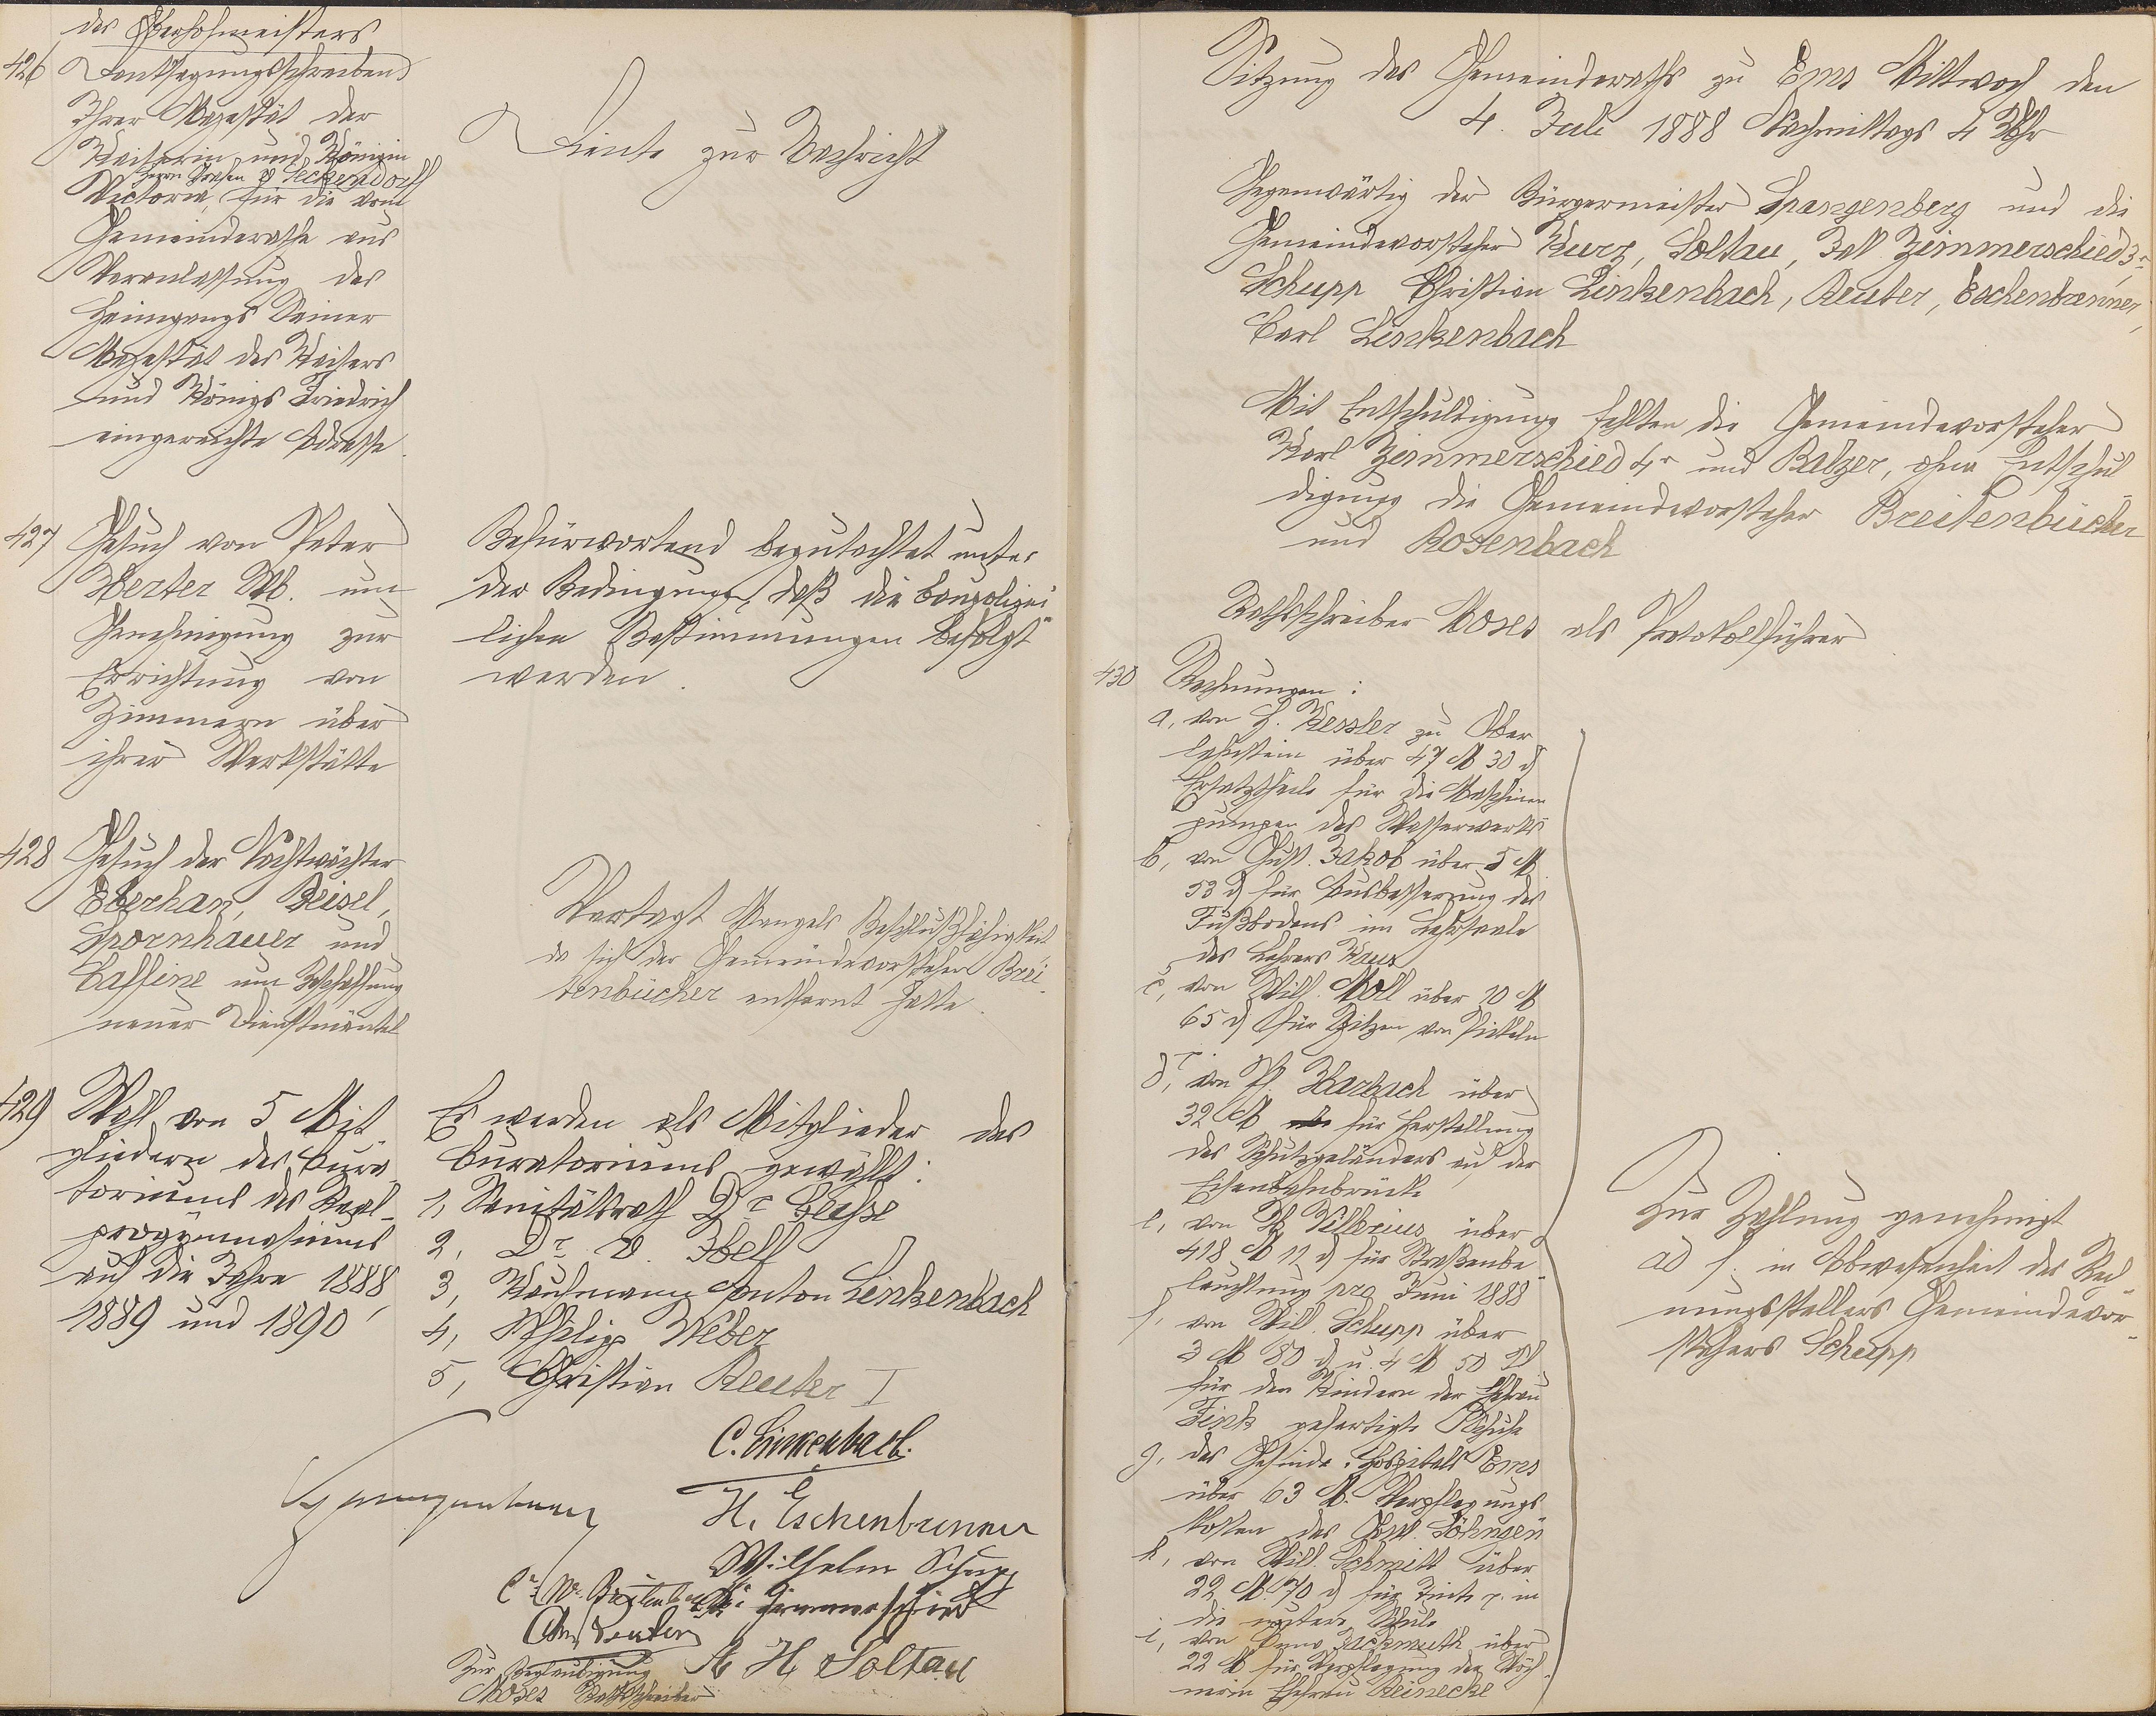 des Oberhofmeisters
426 Danksagungsschreiben
Ihrer Majestät der
Kaiserin und Königin
Herrn Grafen v Seckendorff
Victoria, für die vom
Gemeinderathe aus
Veranlassung des
Heimgangs Seiner
Majestät des Kaisers
und Königs Friedrich
eingereichte Adresse.
Diente zur Nachricht
427 Gesuch von Peter
Herter Wb. um
Genehmigung zur
Errichtung von
Zimmern über
ihrer Werkstätte
Befürwortend begutachtet unter
der Bedingung, daß die baupolizei
lichen Bestimmungen befolgt
werden.
428 Gesuch der Nachtwächter
Eberhan, Beisel,
Spornhauer und
Caffine um Beschaffung
neuer Dienstmäntel
Vertagt Mangels Beschlußfähigkeit
da sich der Gemeindevorsteher Brei
tenbücher entfernt hatte.
429 Wahl von 5 Mit
gliedern des Cura
toriums des Real-
progymnasiums
auf die Jahre 1888,
1889 und 1890
Es werden als Mitglieder des
Curatoriums gewählt:
1, Sanitätsrath Dr
2, Dr v. Ibell
3, Kaufmann Anton Linkenbach
4, Philipp Weber
5, Christian Reuter I
C. Linkenbach.
Spangenberg
H. Eschenbrenner
Wilhelm Schupp
Zimmerschied
Chr. Reuter
A H Soltau
Zur Beglaubigung
Moses Rathschreiber
Sitzung des Gemeinderaths zu Ems Mittwoch den
4. Juli 1888 Nachmittags 4 Uhr
Gegenwärtig der Bürgermeister Spangenberg und die
Gemeindevorsteher Kurz, Soltau, Zimmerschied 3r
Schupp Christian Linkenbach, Reuter, Eschenbrenner,
Carl Linkenbach
Mit Entschuldigung fehlten die Gemeindevorsteher
Karl Zimmerschied 4r und Balzer, ohne Entschul
digung die Gemeindevorsteher Breitenbücher
und Rosenbach
Rathschreiber Moses als Protokollführer
430 Rechnungen:
a, von H. Kessler zu Ober
lahnstein über 47 M 30 d
Ersatztheile für die Maschinen
pumpen des Wasserwerks
b, von Gust. Jakob über 5 M
53 d für Ausbesserung des
Fußbodens im Lehrsaale
des Lehrers Kaus
c, von Wilh. Moll über 10 M
65 d für Spitzen von Pickeln
d, von Ph. Harbach über
32 M für Herstellung
des Schutzgeländers auf der
Eisenbahnbrücke
e, von Ph Vilbrius über
418 M 11 d für Straßenbe
leuchtung pro Juni 1888
f, von Wilh. Schupp über
3 M 80 d u. 4 M 50 d
für den Kindern der Ehefrau
Fink gefertigte Schuhe
g, des Gesinde-Hospitals Ems
über 63 M. Verpflegungs
kosten des Söhngen
h, von Wilh. Schmitt über
22 M. 70 d für Tinte p. in
die untere Schule
i, von Zackmuth über
22 M für Verpflegung der Wöch
nerin Ehefrau Reinecke
Zur Zahlung genehmigt
ad f. in Abwesenheit des Rech
nungsstellers Gemeindevor-
stehers Schupp